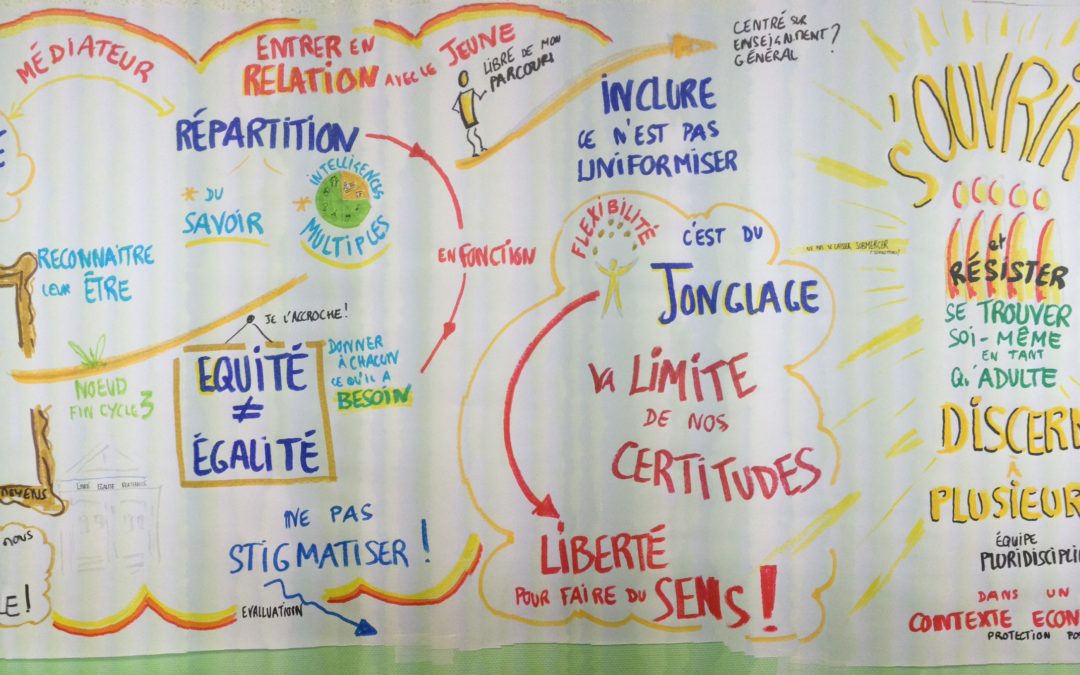 MÉDIATEUR
ENTRER EN
RELATION AVEC LE JEUNE
LIBRE DE MON
PARCOURS
CENTRÉ SUR
ENSEIGNEMENT?
GÉNÉRAL
RÉPARTITION
* DU
SAVOIR
* INTELLIGENCES
MULTIPLES
RECONNAITRE
LEUR ÊTRE
EN FONCTION
JE L'ACCROCHE!
EQUITÉ
≠
ÉGALITÉ
DONNER
À CHACUN
CE QU'IL A
BESOIN
NOEUD
FIN CYCLE 3
LIBERTÉ EGALITE FRATERNITE
MOYENS
NOUS
LE!
NE PAS
STIGMATISER!
EVALUATION
INCLURE
CE N'EST PAS
UNIFORMISER
FLEXIBILITÉ
C'EST DU
JONGLAGE
VA LIMITE
DE NOS
CERTITUDES
LIBERTÉ
POUR FAIRE DU SENS!
NE PAS SE LAISSER SUBMERGER
S'OUVRIR
et
RÉSISTER
SE TROUVER
SOI-MÊME
EN TANT
QU'ADULTE
DISCERN
À
PLUSIEUR
ÉQUIPE
PLURIDISCIPLI
DANS UN
CONTEXTE ECON
PROTECTION PO